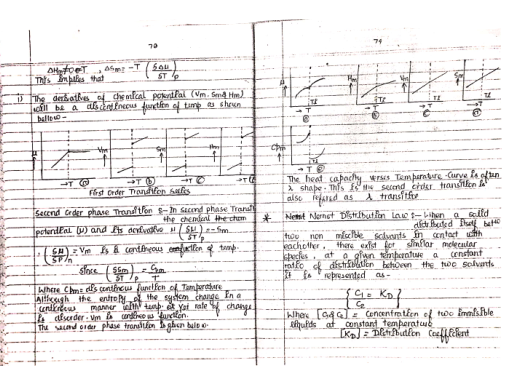 70
This implies that
1) The derivatives of chemical potential (Vm, Sm & Hm)
will be a discontineous function of temp as shown
below -
μ
Vm
Sm
Hm
→T (a)
→T (b)
→T (c)
→T
First Order Transition series
Second Order phase Transition :- In second phase Transit
the chemical the chem
potential (μ) and its derivative
= Vm is a continuous function of temp.
Since
Where Cpm = discontineous function of Temperature
Although the entropy of the system change in a
continuous manner with temp. or rate of change
is disorder. Vm is continous function.
The second order phase transition is given below.
71
μ
Hm
Vm
Sm
→T
→T
→T
→T
Cpm
→T
The heat capacity verses Temperature Curve is often
λ shape. This is the second order transition is
also refered as λ transition
* Nernst Distribution Law :- When a solid
distributed itself betw
two non miscible solvents in contact with
eachother, there exist for similar molecular
species, at a given temperature a constant
ratio of distribution between the two solvents
it is represented as -
{ C₁/C₂ = K_D }
Where [C₁ & C₂] = Concentration of two immisible
liquids at constant temperature
[K_D] = Distribution Coefficient